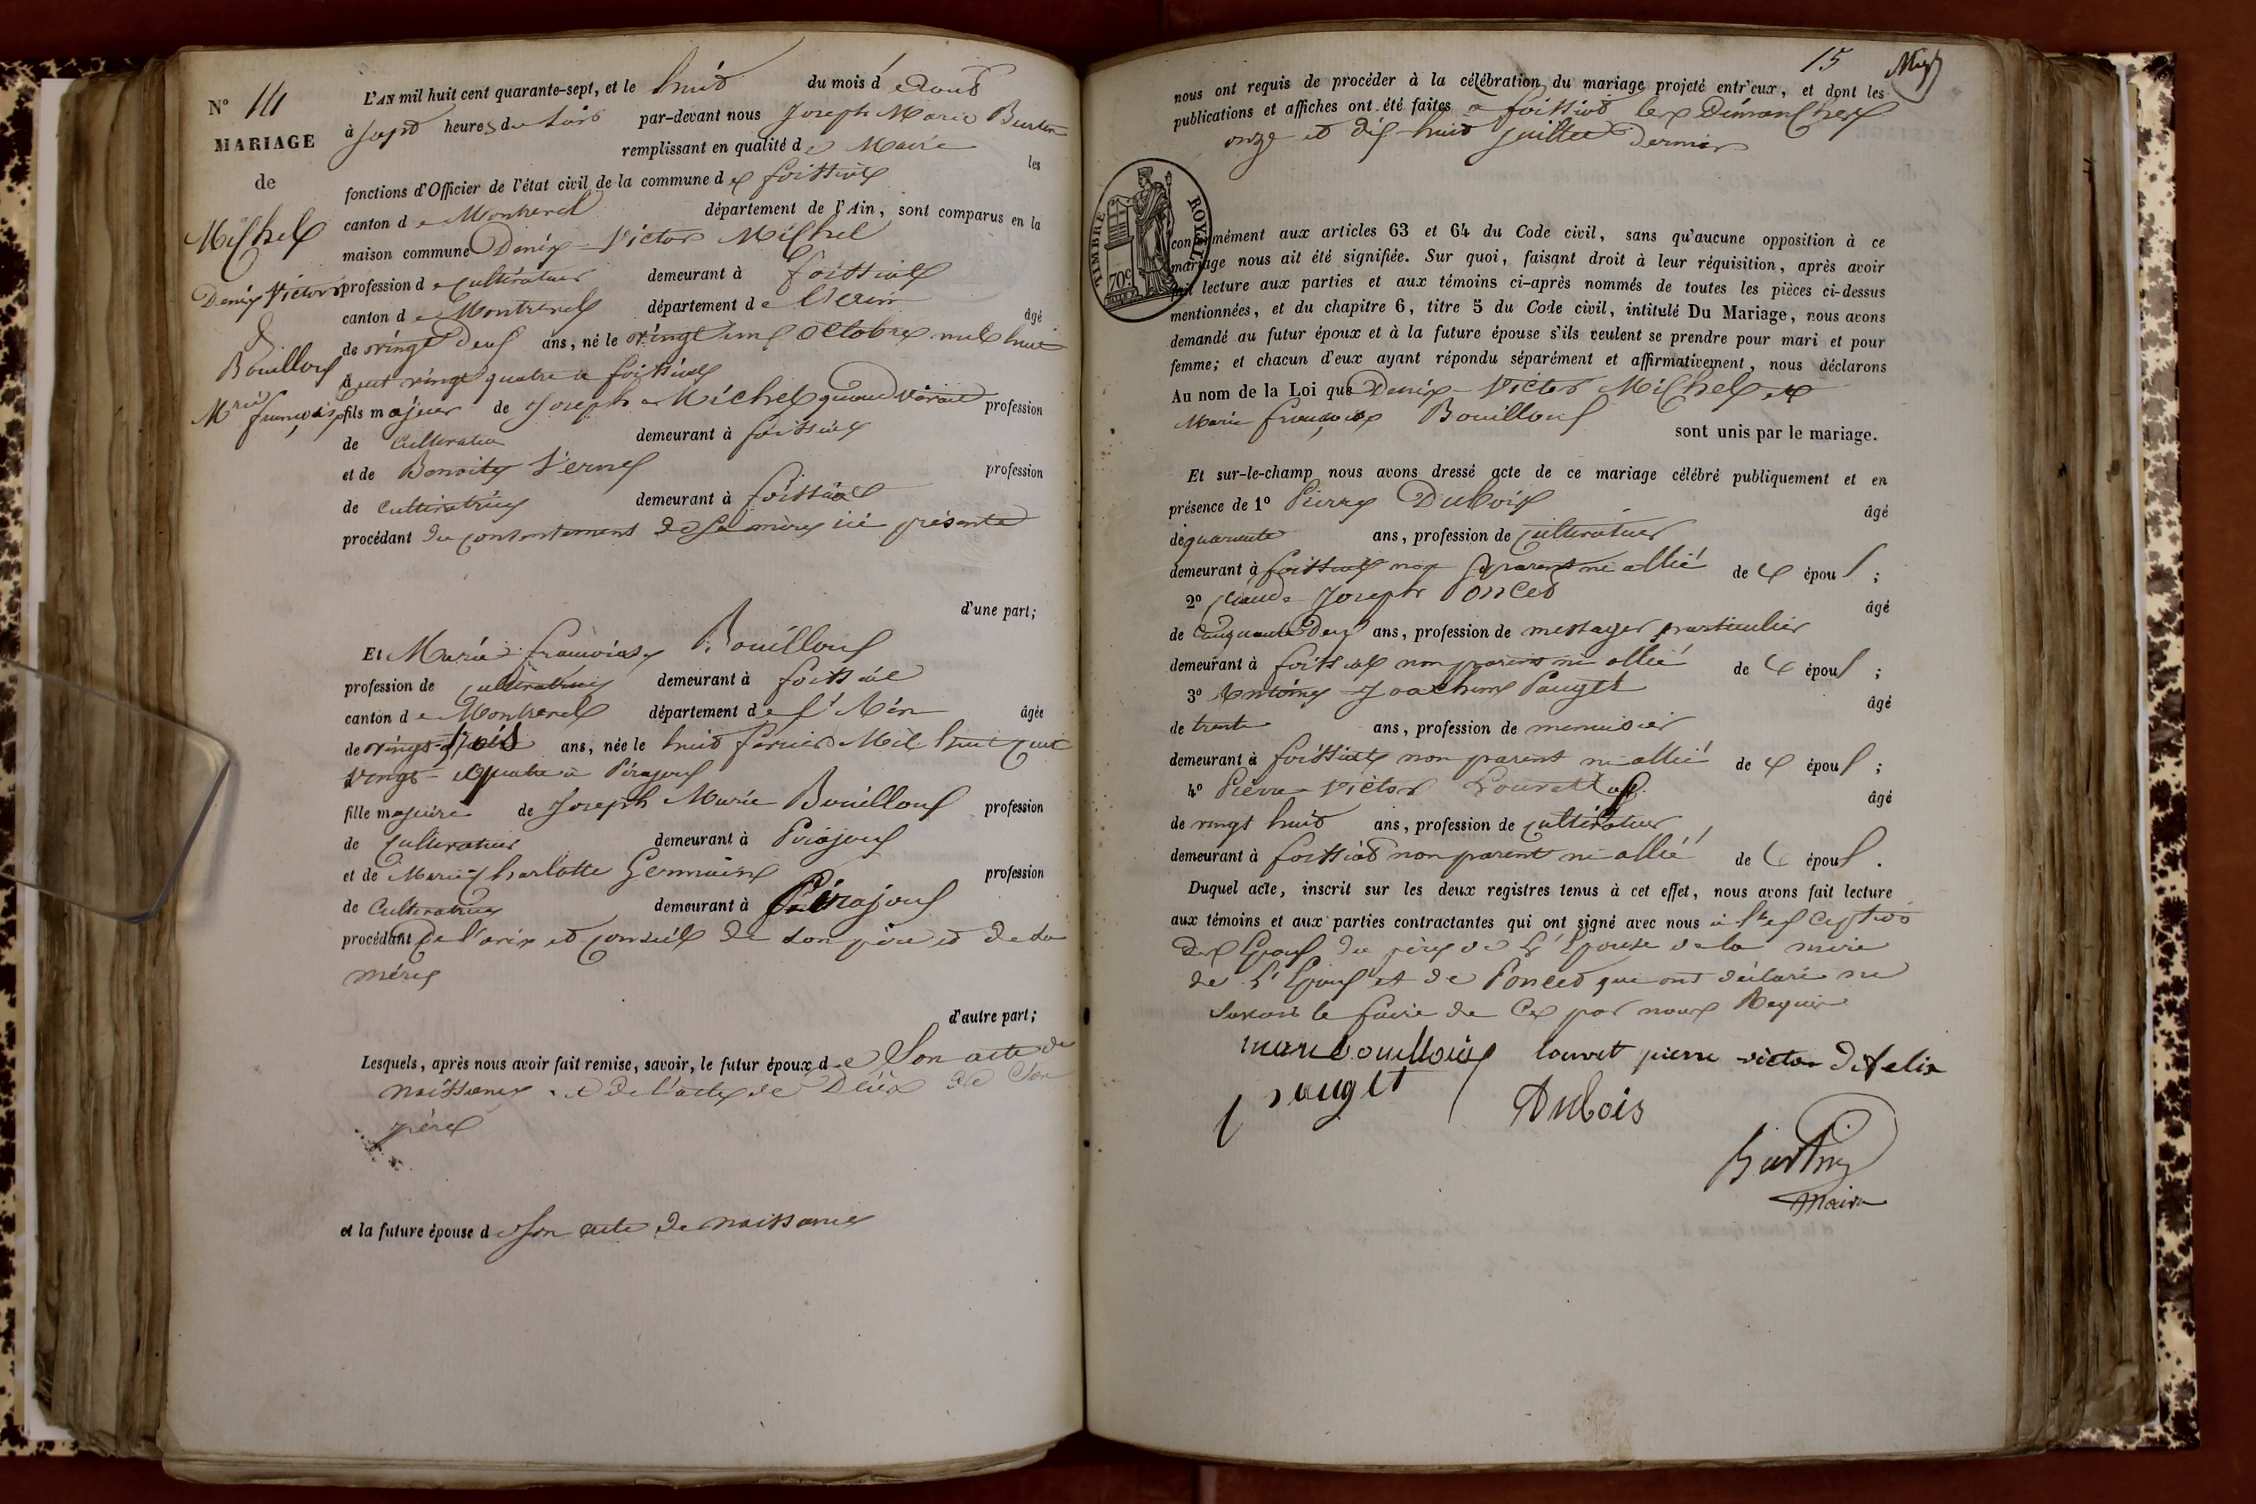 N° 14
MARIAGE
de
Michel
Denis Victor
&
Bouilloux
Mrie françoise
L'AN mil huit cent quarante-sept, et le huit du mois d'Aout
à sept heures du soir par-devant nous Joseph Marie
remplissant en qualité de Maire les
fonctions d'Officier de l'état civil de la commune de foissiat
canton de Montrevel département de l'Ain, sont comparus en la
maison commune Denis Victor Michel
profession de cultivateur demeurant à foissiat
canton de Montrevel département de l'ain âgé
de vingt deux ans, né le vingt octobre mil huit
cent vingt quatre à foissiat
fils majeur de Joseph Michel quand vivait profession
de cultivateur demeurant à foissiat
et de Benoite Verne profession
de cultivatrice demeurant à foissiat
procédant du consentement de sa mère ici présente
d'une part;
Et Marie françoise Bouilloux
profession de cultivatrice demeurant à foissiat
canton de Montrevel département de l'Ain âgée
de vingt trois ans, née le huit fevrier Mil huit cent
vingt quatre à Pirajoux
fille majeure de Joseph Marie Bouilloux profession
de cultivateur demeurant à Pirajoux
et de Marie Charlotte Germain profession
de Cultivatrice demeurant à Pirajoux
procédant de l'avis et conseil de son père et de sa
mère
d'autre part;
Lesquels, après nous avoir fait remise, savoir, le futur époux de Son acte de
naissance et de l'acte de Décès de Son
père
et la future épouse de Son acte de naissance
15
nous ont requis de procéder à la célébration du mariage projeté entr'eux, et dont les
publications et affiches ont été faites à foissiat les Dimanches
onze et dix huit juillet dernier
TIMBRE ROYAL
70c.
conformément aux articles 63 et 64 du Code civil, sans qu'aucune opposition à ce
mariage nous ait été signifiée. Sur quoi, faisant droit à leur réquisition, après avoir
fait lecture aux parties et aux témoins ci-après nommés de toutes les pièces ci-dessus
mentionnées, et du chapitre 6, titre 5 du Code civil, intitulé Du Mariage, nous avons
demandé au futur époux et à la future épouse s'ils veulent se prendre pour mari et pour
femme; et chacun d'eux ayant répondu séparément et affirmativement, nous déclarons
Au nom de la Loi que Denis Victor Michel et
Marie françoise Bouilloux
sont unis par le mariage.
Et sur-le-champ nous avons dressé acte de ce mariage célébré publiquement et en
présence de 1° Pierre Dubois âgé
de quarante ans, profession de cultivateur
demeurant à foissiat non parent ni allié des époux;
2° Claude Joseph Poncet âgé
de cinquante deux ans, profession de messager particulier
demeurant à foissiat non parent ni allié des époux;
3° Antoine Joachim Pauget âgé
de trente ans, profession de menuisier
demeurant à foissiat non parent ni allié des époux;
4° Pierre Victor âgé
de vingt huit ans, profession de cultivateur
demeurant à foissiat non parent ni allié des époux.
Duquel acte, inscrit sur les deux registres tenus à cet effet, nous avons fait lecture
aux témoins et aux parties contractantes qui ont signé avec nous à l'exception
des Epoux du père de l'Epouse de la mère
de l'Epoux et de Poncet qui ont déclaré ne
savoir le faire de ce par nous Requis
louvet pierre victor
pauget
Dubois
maire